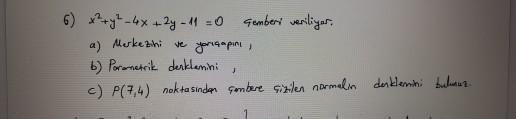 6) x²+y²-4x+2y-11=0 çemberi veriliyor.
a) Merkezini ve yarıçapını,
b) Parametrik denklemini,
c) P(7,4) noktasından çembere çizilen normalin denklemini bulunuz.